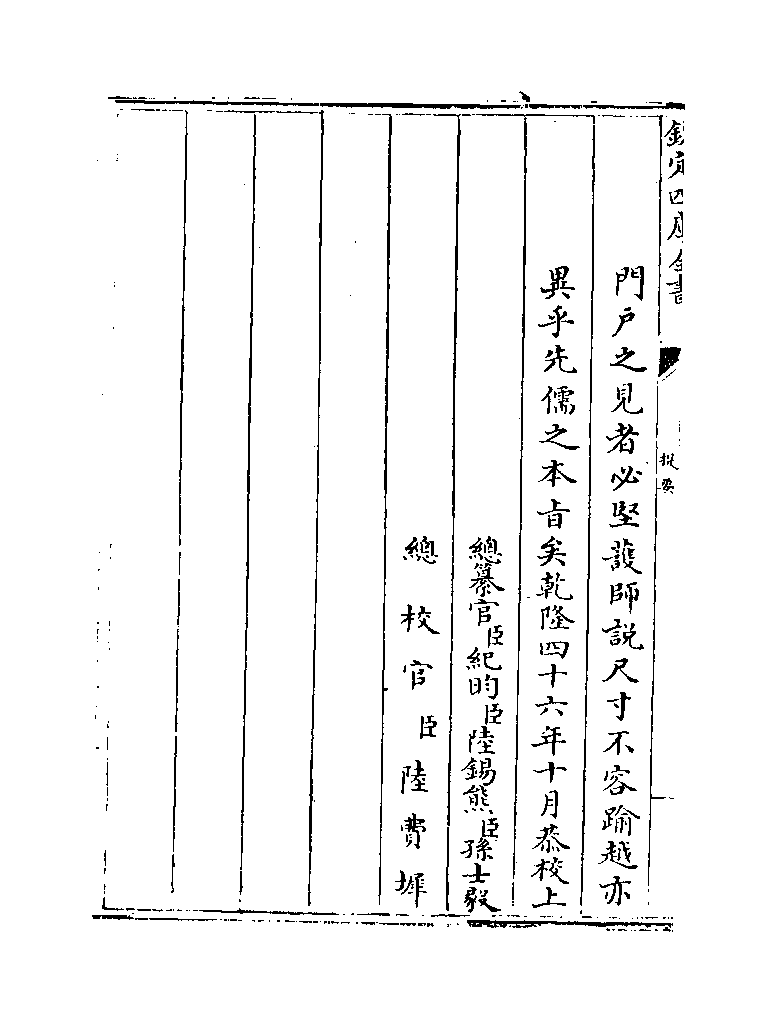 欽定四庫全書
提要
門戸之見者必堅護師説尺寸不容踰越亦
異乎先儒之本旨矣乾隆四十六年十月恭校上
總纂官臣紀昀臣陸錫熊臣孫士毅
總校官臣陸費墀